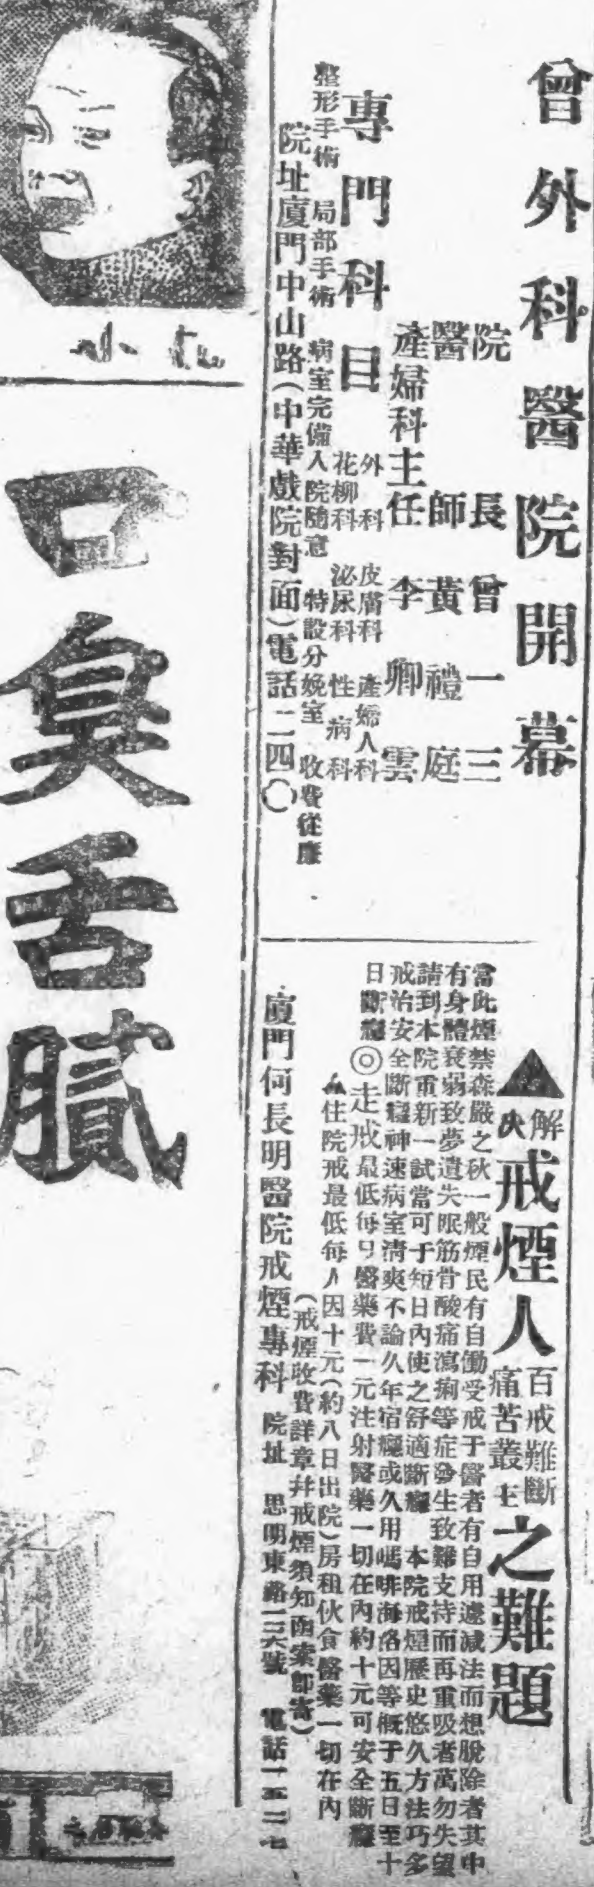 曾外科醫院開幕
院長 曾一三
醫師 黃禮庭
產婦科主任 李卿雲
專門科目
外科 皮膚科 產婦人科
花柳科 泌尿科 性病科
整形手術 局部手術 病室完備入院隨意 特設分娩室 收費從廉
院址廈門中山路(中華戲院對面)電話二四〇
▲解決戒煙人百戒難斷痛苦叢生之難題
當此煙禁森嚴之秋一般煙民有自働受戒于醫者有自用遞減法而想脫除者其中
有身體衰弱致夢遺失眠筋骨酸痛瀉痢等症發生致難支持而再重吸者萬勿失望
請到本院重新一試當可于短日內使之舒適斷癮 本院戒煙歷史悠久方法巧多
戒治安全斷癮神速病室清爽不論久年宿癮或久用嗎啡海洛因等概于五日至十
日斷癮◎走戒最低每日醫藥費一元注射醫藥一切在內約十元可安全斷癮
▲住院戒最低每人因十元(約八日出院)房租伙食醫藥一切在內
(戒煙收費詳章幷戒煙須知函索即寄)
廈門何長明醫院戒煙專科 院址 思明東路一六號 電話一五二七
口臭舌膩